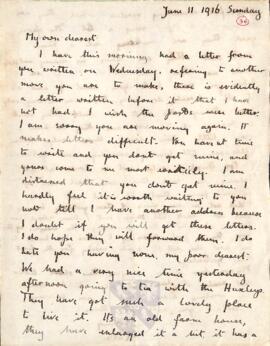 June 11 1916 Sunday
My own dearest
I have this morning had a letter from
you written on Wednesday. refering to another
move you are to make, there is evidently
a letter written before it that I have
not had. I wish the posts were better.
I am sorry you are moving again. It
makes letters difficult. You have at time
to write and you dont get mine, and
yours come to me most erratically. I am
distressed that you don't get mine. I
hardly feel it's worth writing to you
not till I have another address because
I doubt if you will get these letters.
I do hope they will forward them. I do
hate you having none, my poor dearest.
We had a very nice time yesterday
afternoon going to tea with the Huxleys.
They have got such a lovely place
to live it. It's an old farm house,
they have enlarged it a bit, it has a